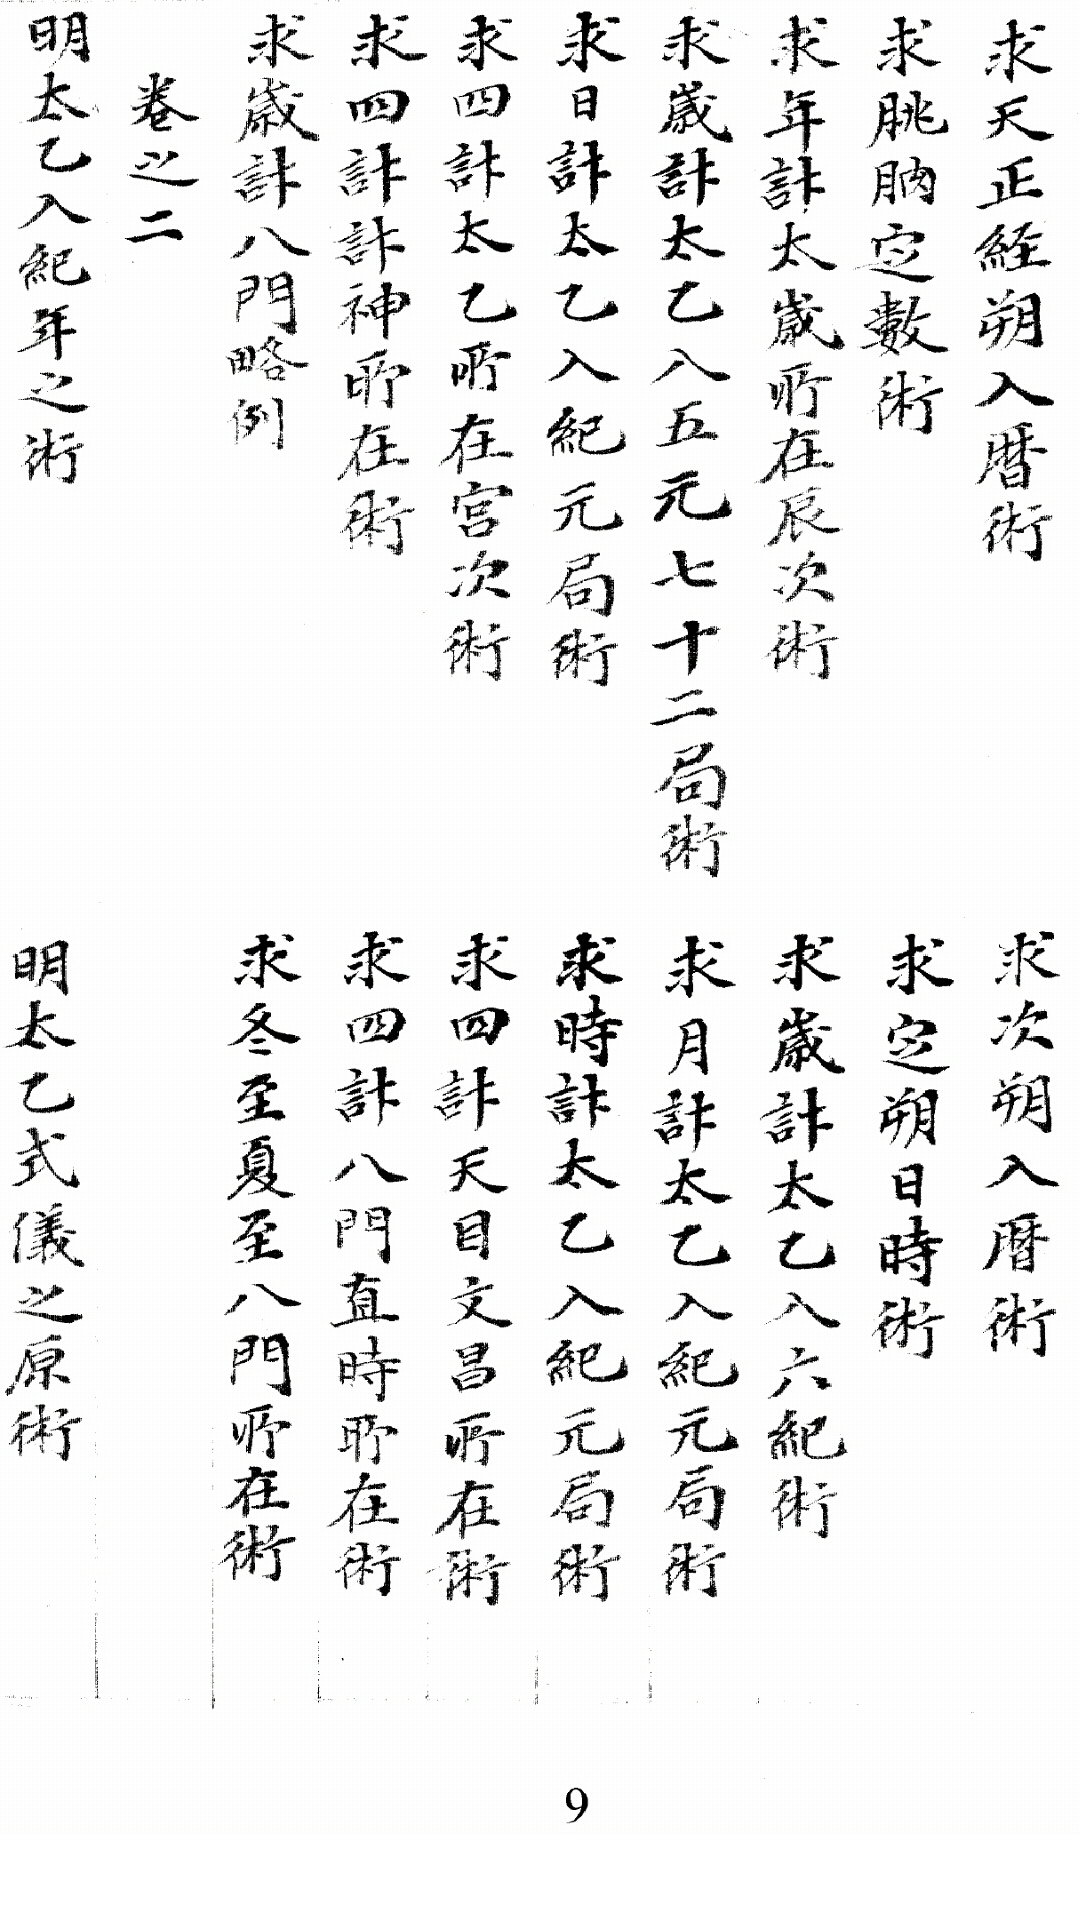 求天正経朔入暦術
求次朔入暦術
求朓朒定數術
求定朔日時術
求年計太歳所在辰次術
求歳計太乙入六紀術
求歳計太乙入五元七十二局術
求月計太乙入紀元局術
求日計太乙入紀元局術
求時計太乙入紀元局術
求四計太乙所在宮次術
求四計天目文昌所在術
求四計計神所在術
求四計八門直時所在術
求歳計八門略例
求冬至夏至八門所在術
卷之二
明太乙入紀年之術
明太乙式儀之原術
9